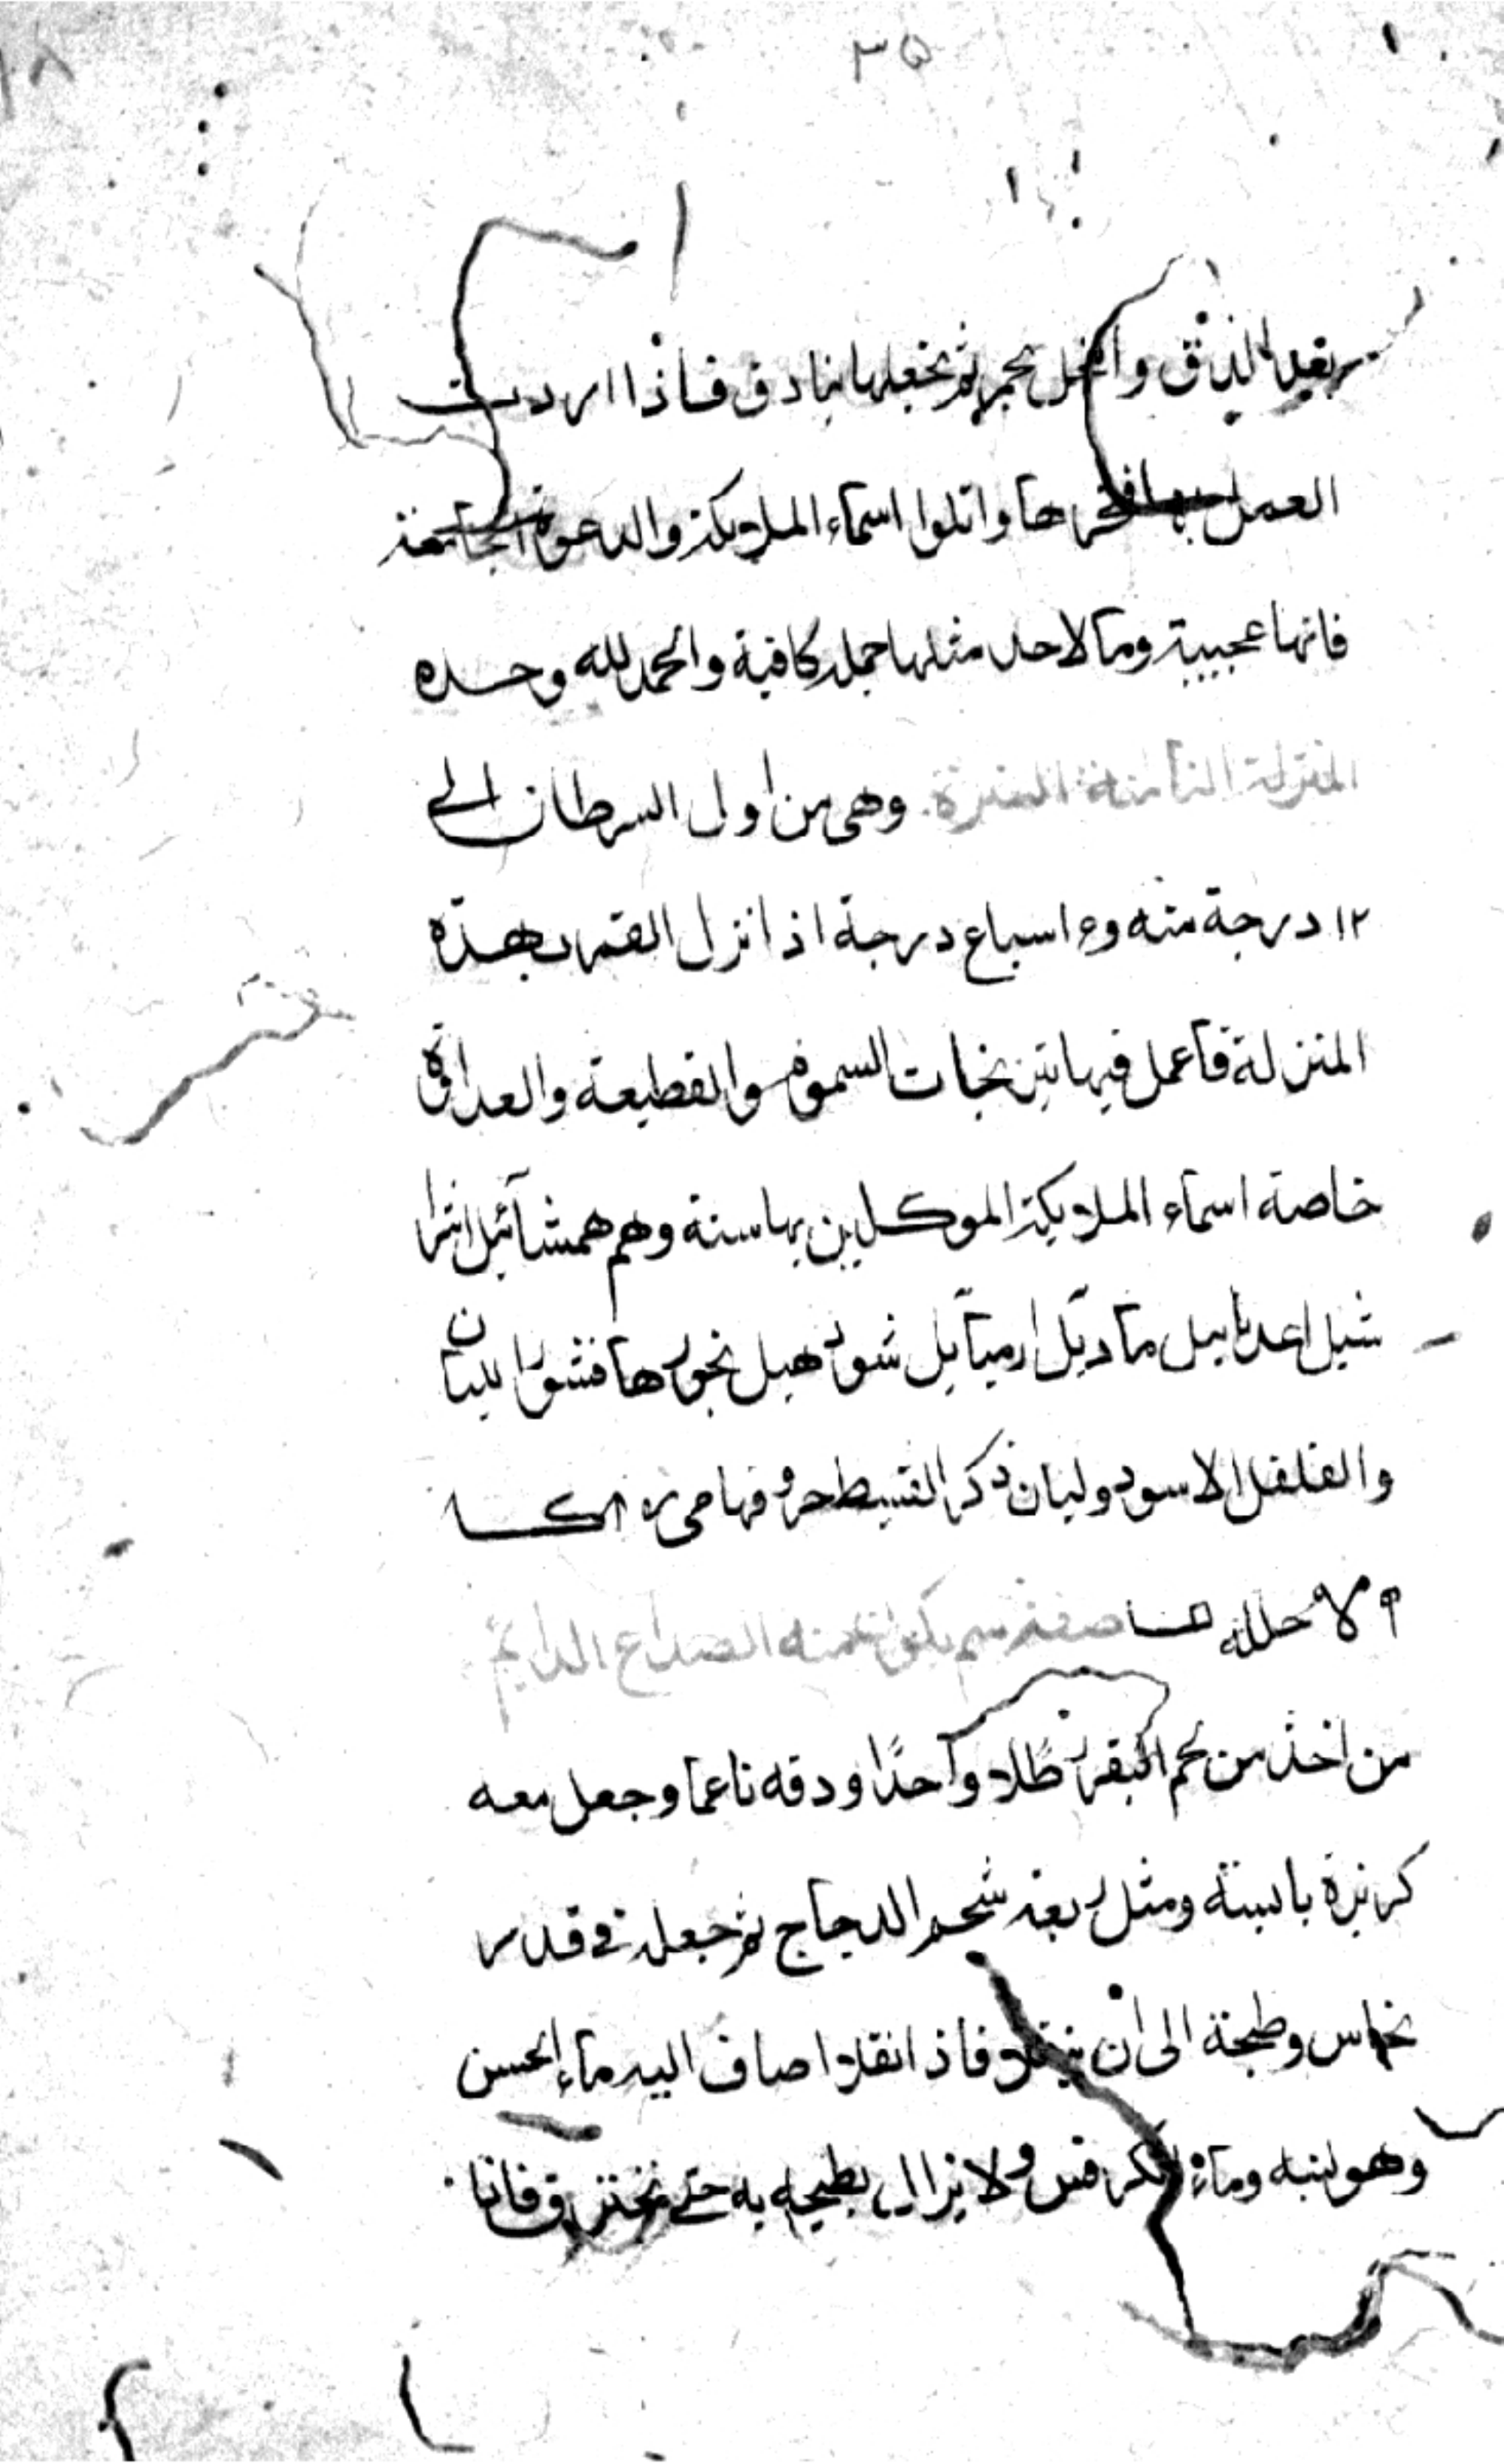 ٣٥
بعد الدق والنخل بحجر ثم تجعلها بنادق فاذا اردت
العمل بها فخرها واتلوا اسماء الملايكة والدعوة الجامعة
فانها عجيبة وما لاحد مثلها جملة كافية والحمد لله وحده
المنزلة الثامنة النثرة وهى من اول السرطان الى
١٢ درجة منه وء اسباع درجة اذا نزل القمر بهذه
المنزلة فاعمل فيها نيرنجات السموم والقطيعة والعداوة
خاصة اسماء الملايكة الموكلين بها ستة وهم همشائيل اثرا
شيل اعدابيل ماديل ارميائيل شود هيل بخورها قشور اللبان
والفلفل الاسود ولبان ذكر القسط حروفها
صفة سم يكون منه الصداع الدايم
من اخذ من لحم البقر رطلا واحدًا ودقه ناعما وجعل معه
كزبرة يابسة ومثل ربعه شحم الدجاج ثم جعله فى قدر
نحاس وطبخة الى ان فاذ انقلا اضاف اليه ماء الحسن
وهو لبنه وماء الكرفس ولا يزال يطبخه به حتى تحترق فانا